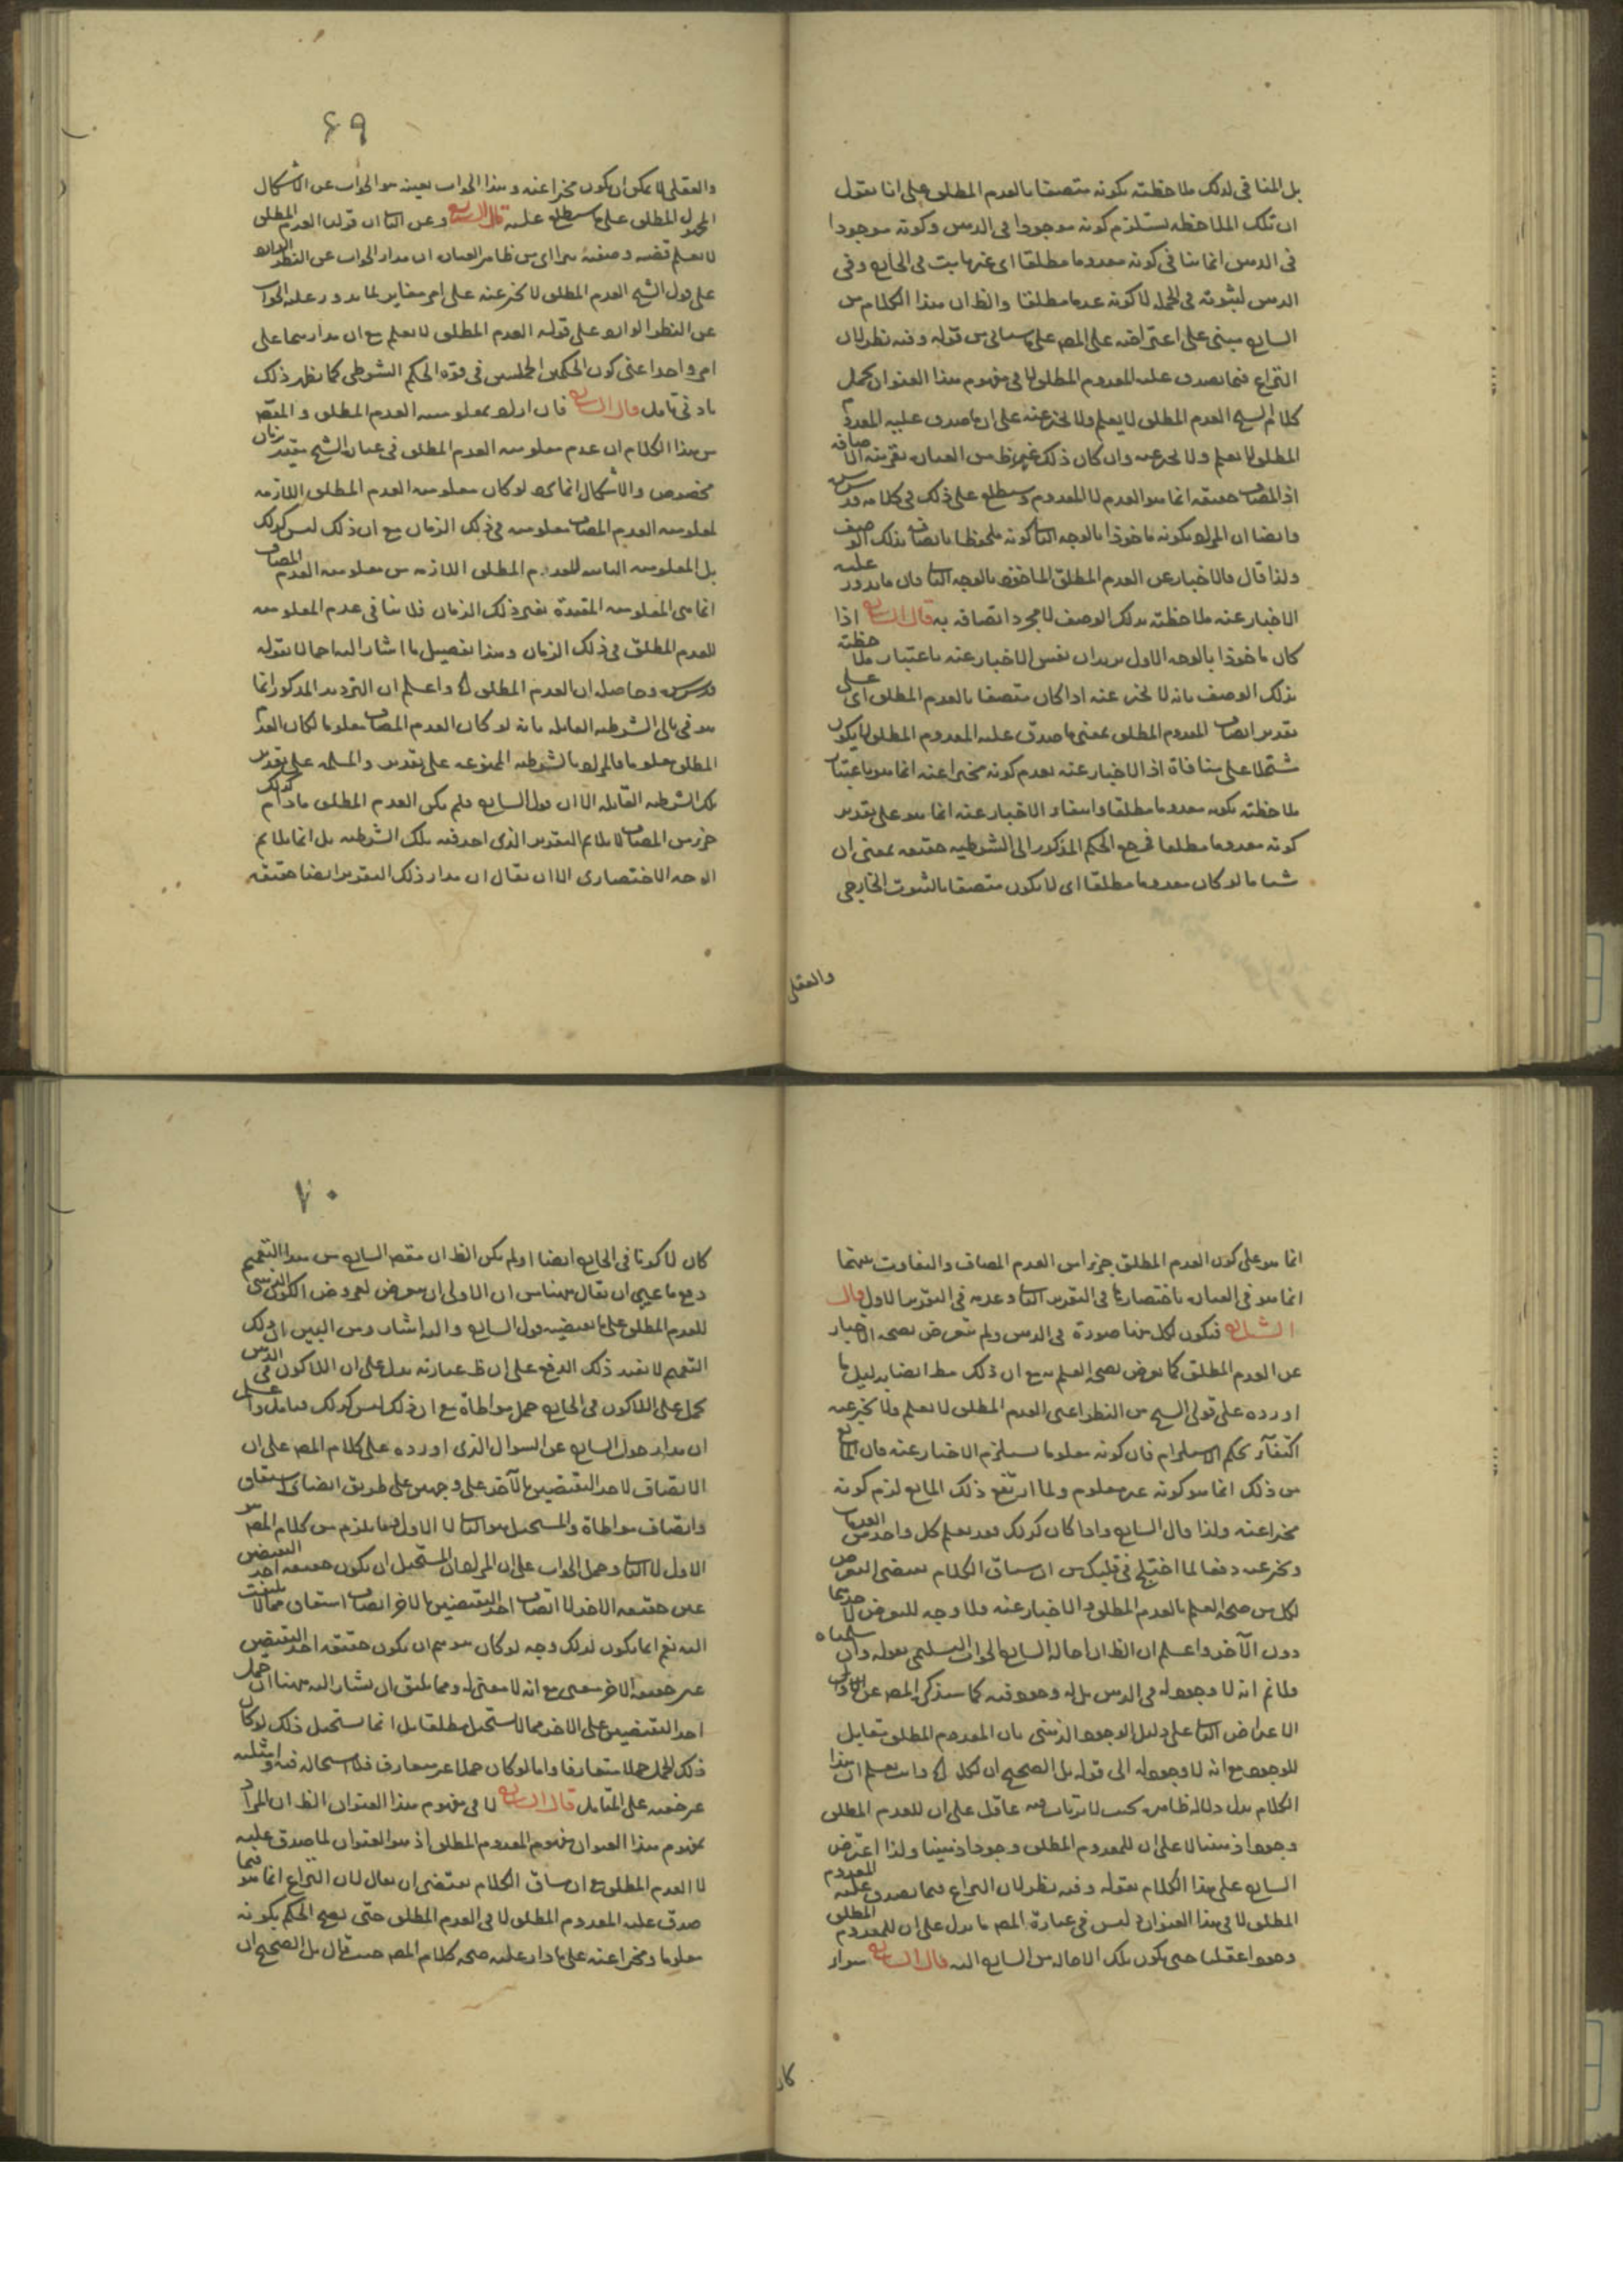 بل المنافى لذلك ملاحظته بكونه متصفا بالعدم المطلق على انا نقول
ان تلك الملاحظه يستلزم كونه موجودا فى الذهن وكونه موجودا
فى الذهن انما ينافى كونه معدوما مطلقا اى غير ثابت فى الخارج وفى
الذهن لثبوته فى الجمله لا كونه عدما مطلقا والظ ان هذا الكلام من
الشارح مبنى على اعتراضه على المص على ما سياتى من قوله وفيه نظر لان
النزاع فيما يصدق عليه المعدوم المطلق لا فى مفهوم هذا العنوان بحمل
كلام الشيخ العدم المطلق لا يعلم ولا يخبر عنه على ان ما صدق عليه المعدوم
المطلق لا يعلم ولا يخبر عنه وان كان ذلك غير ظ من العباره بقرينه الاضافه
اذ المضاف حقيقه انما هو العدم لا المعدوم وسيطلع على ذلك فى كلامه
وايضا ان المراد بكونه ماخوذا بالوجه الثانى كونه ملحوظا باتصافه بذلك الوصف
ولذا قال فالاخبار عن العدم المطلق الماخوذ بالوجه الثانى فان ما يدور عليه
الاخبار عنه ملاحظته بذلك الوصف لا مجرد اتصافه به قال الشارح اذا
كان ماخوذا بالوجه الاول يريد ان نفس الاخبار عنه باعتبار ملاحظته
بذلك الوصف بانه لا يخبر عنه اذا كان متصفا بالعدم المطلق اى على
تقدير اتصاف المعدوم المطلق بمعنى ما صدق عليه المعدوم المطلق لا يكون
مشتملا على منافاة اذ الاخبار عنه بعدم كونه مخبرا عنه انما هو باعتبار
ملاحظته بكونه معدوما مطلقا وانتفاء الاخبار عنه انما هو على تقدير
كونه معدوما مطلقا فرجع الحكم المذكور الى الشرطيه حقيقه بمعنى ان
شيئا ما لو كان معدوما مطلقا اى لا يكون متصفا بالثبوت الخارجى
والعقلى
٦٩
والعقلى لا يمكن ان يكون مخبرا عنه وهذا الجواب بعينه هو الجواب عن الاشكال
المجهول المطلق على ما سيطلع عليه قال الشارح وعن الثانى ان قولنا العدم المطلق
لا يعلم قضيه وصفيه يتراءى من ظاهر العباره ان مدار الجواب عن النظر الوارد
على قول الشيخ العدم المطلق لا يخبر عنه على امر مغاير لما يدور عليه الجواب
عن النظر الوارد على قوله العدم المطلق لا يعلم مع ان مدارهما على
امر واحد اعنى كون الحكمين الحمليين فى قوه الحكم الشرطى كما يظهر ذلك
بادنى تامل قال الشارح فان اراد بمعلوميه العدم المطلق والمقص
من هذا الكلام ان عدم معلوميه العدم المطلق فى عباره الشيخ مقيد بزمان
مخصوص والاشكال انما يرد لو كان معلوميه العدم المطلق اللازمه
لمعلوميه العدم المضاف معلوميه فى ذلك الزمان مع ان ذلك ليس كذلك
بل المعلوميه الثابته للعدم المطلق اللازمه من معلوميه العدم المضاف
انما هى المعلوميه المقيدة بغير ذلك الزمان فلا ينافى عدم المعلوميه
للعدم المطلق فى ذلك الزمان وهذا تفصيل ما اشار اليه اجمالا بقوله
وحاصله ان العدم المطلق اه واعلم ان الترديد المذكور انما
هو فى تالى الشرطيه القائله بانه لو كان العدم المضاف معلوما لكان العدم
المطلق معلوما فالمراد بالشرطيه الممنوعه على تقدير والمسلمه على تقدير
تلك الشرطيه القائله الا ان قول الشارح فلم يكن العدم المطلق مادام كذلك
جزء من المضاف لا يلائم التقدير الذى اخذ فيه تلك الشرطيه بل انما يلائم
الوجه الاختصارى الا ان يقال ان مدار ذلك التقدير ايضا حقيقه
انما هو على كون العدم المطلق جزءا من العدم المضاف والتفاوت بينهما
انما هو فى العباره باختصارها فى التقدير الثانى وعدمه فى التقدير الاول قال
الشارح فيكون لكل منها صورة فى الذهن ولم يتعرض لصحه الاخبار
عن العدم المطلق كما تعرض لصحه العلم به مع ان ذلك ايضا بدليل ما
اورده على قولى الشيخ من النظر اعنى العدم المطلق لا يعلم ولا يخبر عنه
اكتفاء بحكم الاستلزام فان كونه معلوما يستلزم الاخبار عنه فان المانع
من ذلك انما هو كونه غير معلوم ولما ارتفع ذلك المانع لزم كونه
مخبرا عنه ولذا قال الشارح واذا كان كذلك فقد يعلم كل واحد من
ويخبر عنه دفعا لما اختلج فى قلبك من ان سياق الكلام يقتضى التعرض
لكل من صحه العلم بالعدم المطلق والاخبار عنه ولا وجه للتعرض لاحدهما
دون الآخر واعلم ان الظ ان احاله الشارح الجواب التسليمى بقوله وان سلمناه
فلا نم انه لا وجود له فى الذهن بل له وجود فيه كما سيذكر المص عن
الاعتراض الثانى على دليل الوجود الذهنى بان المعدوم المطلق مقابل
للوجود مع انه لا وجود له الى قوله بل الصحيح ان لكل اه وانت تعلم ان هذا
الكلام يدل دلاله ظاهره بحيث لا يرتاب فيه عاقل على ان للعدم المطلق
وجودا ذهنيا لا على ان للمعدوم المطلق وجودا ذهنيا ولذا اعترض
الشارح على هذا الكلام بقوله وفيه نظر لان النزاع فيما يصدق عليه المعدوم
المطلق لا فى هذا العنوان وليس فى عبارة المص ما يدل على ان للمعدوم المطلق
وجودا عقليا حتى يكون تلك الاحاله من الشارح اليه قال الشارح سواء
كان
٧٠
كان لا كونا فى الخارج ايضا او لم يكن الظ ان مقص الشارح من هذا التعميم
دفع ما عسى ان يقال من ان الاولى ان يتعرض لعروض الكون الذهنى
للعدم المطلق على ما يقتضيه قول الشارح واليه اشار ومن البين ان ذلك
التعميم لا يفيد ذلك الدفع على ان ظ عبارته يدل على ان اللاكون فى الذهن
يحمل على اللاكون فى الخارج حمل مواطاة مع ان ذلك ليس كذلك فتامل واعلم
ان مدار جواب الشارح عن السوال الذى اورده على كلام المص على ان
الاتصاف لاحد النقيضين بالآخر على وجهين على طريق اتصاف اشتقاق
واتصاف مواطاة والمستحيل هو الثانى لا الاول وما يلزم من كلام المص هو
الاول لا الثانى وحمل الجواب على ان المراد ان المستحيل ان يكون حقيقه احد النقيضين
عين حقيقه الاخر لا اتصاف احد النقيضين بالاخر اتصاف اشتقاق مما لا يلتفت
اليه نعم انما يكون لذلك وجه لو كان توهم ان يكون حقيقه احد النقيضين
عين حقيقه الاخر معنى مع انه لا معنى له ومما يليق ان يشار اليه هنا ان حمل
احد النقيضين على الاخر مما لا يستحيل مطلقا بل انما يستحيل ذلك لو كان
ذلك الحمل حملا متعارفا واما لو كان حملا غير متعارف فلا استحاله فيه وامثلته
غير خفيه على المتامل قال الشارح لا فى مفهوم هذا العنوان الظ ان المراد
بمفهوم هذا العنوان مفهوم المعدوم المطلق اذ هو العنوان لما صدق عليه
لا العدم المطلق مع ان سياق الكلام يقتضى ان يقال لان النزاع انما هو فيما
صدق عليه المعدوم المطلق لا فى العدم المطلق حتى يصح الحكم بكونه
معلوما ومخبرا عنه على ما دار عليه صحه كلام المص حيث قال بل الصحيح ان